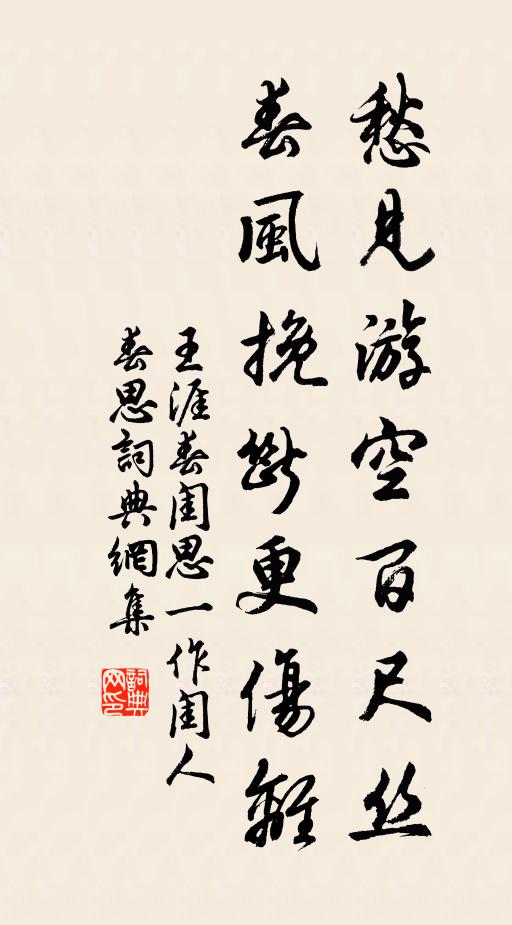 愁見游空百尺丝
春風挽斷更傷離
王涯春闺思一作闺人
春思詞典網集
詞典网印